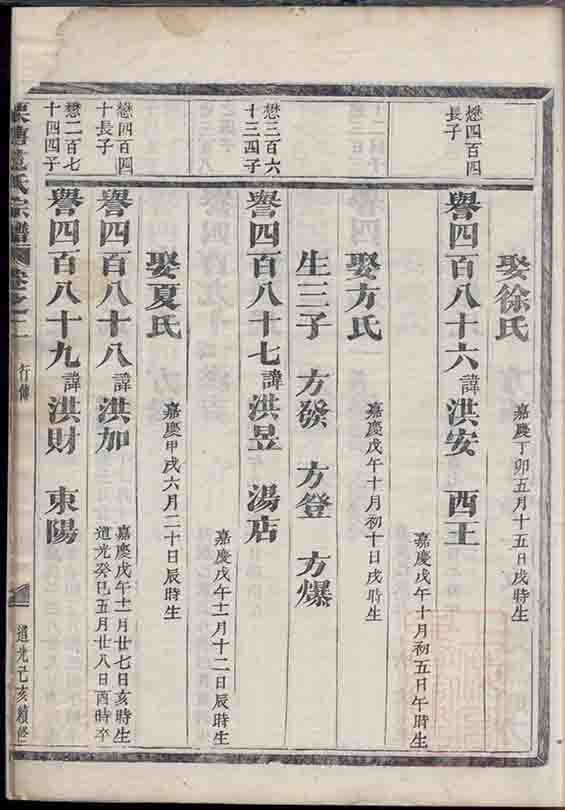 娶徐氏
嘉慶丁卯五月十五日戌時生
懋四百四
長子
譽四百八十六諱洪安 酉王
嘉慶戊午十月初五日午時生
娶方氏
嘉慶戊午十月初十日戌時生
生三子 方發 方登 方爆
懋三百六
十三四子
譽四百八十七諱洪昱 湯店
嘉慶戊午十一月十二日辰時生
娶夏氏
嘉慶甲戌六月二十日辰時生
懋四百四
十長子
譽四百八十八諱洪加
嘉慶戊午十一月廿七日亥時生
道光癸巳五月廿八日酉時卒
懋二百七
十四四子
譽四百八十九諱洪財 東陽
氏宗譜 卷之二 行傳 道光己亥續修